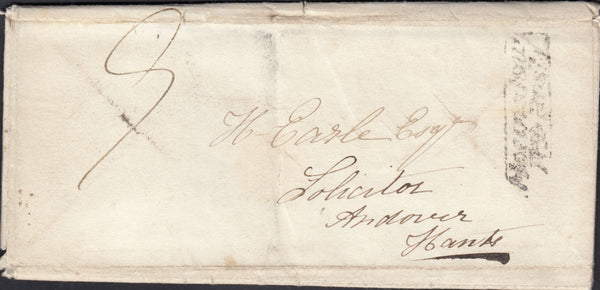 9
H Earle Esqr
Solicitor
Andover
Hants